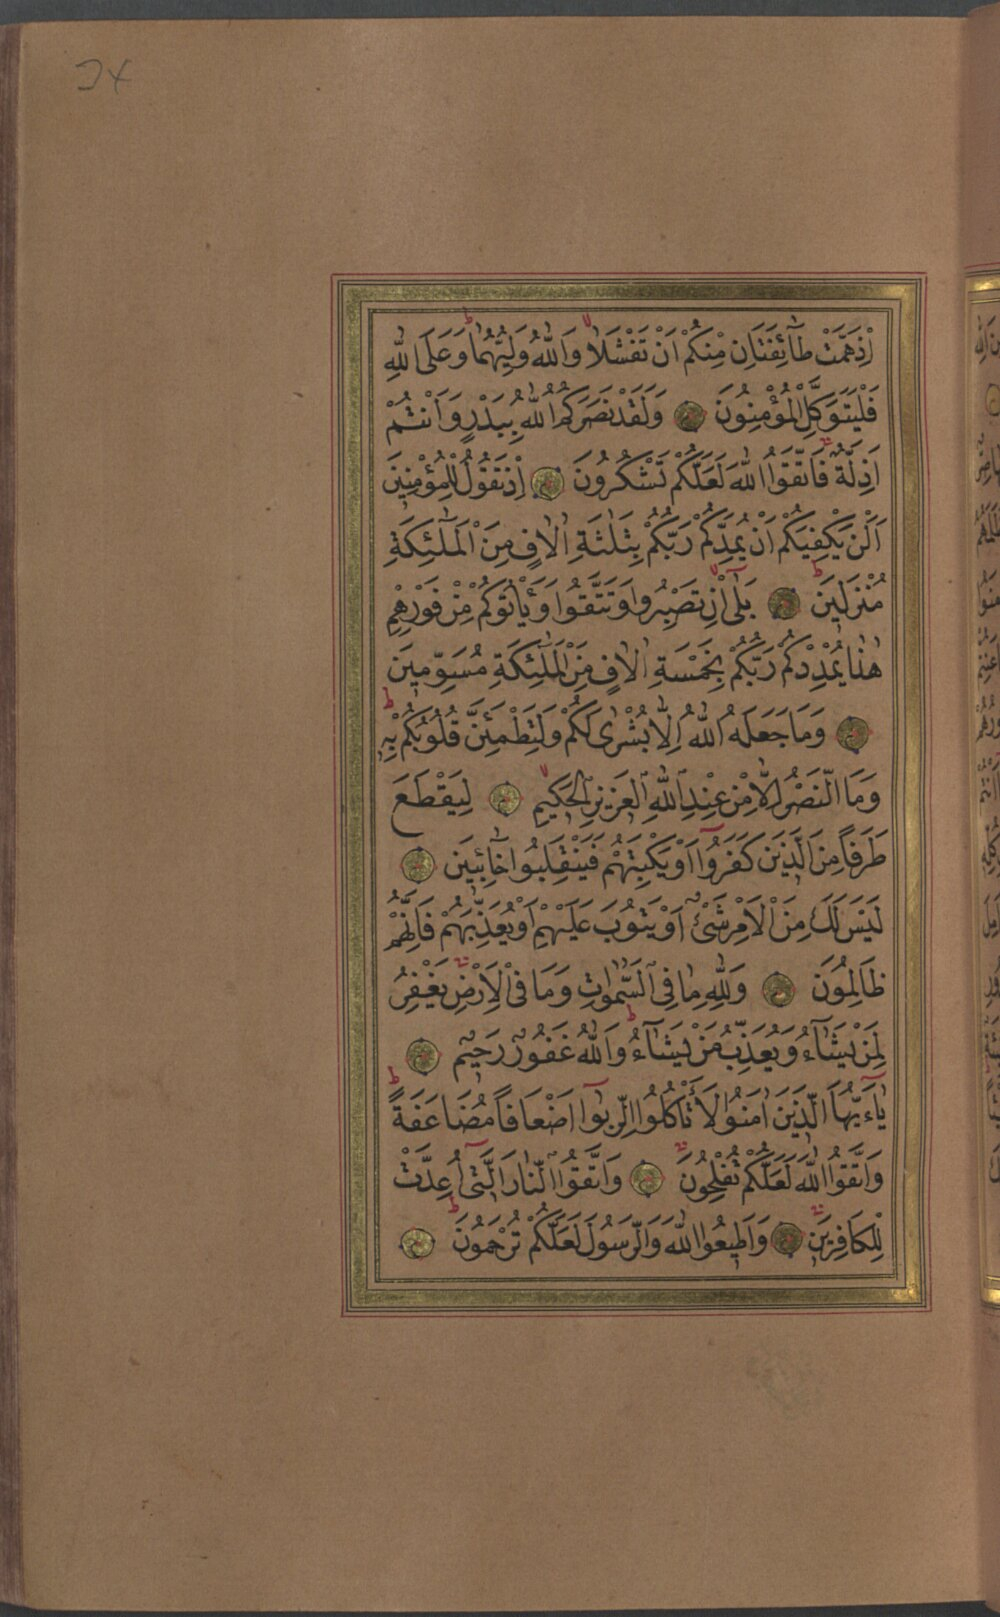 اِذْهَمَّتْ طَآئِفَتَانِ مِنْكُمْ اَنْ تَفْشَلَا وَاللّٰهُ وَلِيُّهُمَا وَعَلَى اللّٰهِ
فَلْيَتَوَكَّلِ الْمُؤْمِنُونَ وَلَقَدْ نَصَرَكُمُ اللّٰهُ بِبَدْرٍ وَاَنْتُمْ
اَذِلَّةٌ فَاتَّقُوا اللّٰهَ لَعَلَّكُمْ تَشْكُرُونَ اِذْ تَقُولُ لِلْمُؤْمِنِينَ
اَلَنْ يَكْفِيَكُمْ اَنْ يُمِدَّكُمْ رَبُّكُمْ بِثَلٰثَةِ اٰلَافٍ مِنَ الْمَلٰٓئِكَةِ
مُنْزَلِينَ بَلٰٓى اِنْ تَصْبِرُوا وَتَتَّقُوا وَيَأْتُوكُمْ مِنْ فَوْرِهِمْ
هٰذَا يُمْدِدْكُمْ رَبُّكُمْ بِخَمْسَةِ اٰلَافٍ مِنَ الْمَلٰٓئِكَةِ مُسَوِّمِينَ
وَمَا جَعَلَهُ اللّٰهُ اِلَّا بُشْرٰى لَكُمْ وَلِتَطْمَئِنَّ قُلُوبُكُمْ بِهٖ
وَمَا النَّصْرُ اِلَّا مِنْ عِنْدِ اللّٰهِ الْعَزِيزِ الْحَكِيمِ لِيَقْطَعَ
طَرَفًا مِنَ الَّذِينَ كَفَرُوٓا اَوْ يَكْبِتَهُمْ فَيَنْقَلِبُوا خَآئِبِينَ
لَيْسَ لَكَ مِنَ الْاَمْرِ شَيْءٌ اَوْ يَتُوبَ عَلَيْهِمْ اَوْ يُعَذِّبَهُمْ فَاِنَّهُمْ
ظَالِمُونَ وَلِلّٰهِ مَا فِى السَّمٰوَاتِ وَمَا فِى الْاَرْضِ يَغْفِرُ
لِمَنْ يَشَآءُ وَيُعَذِّبُ مَنْ يَشَآءُ وَاللّٰهُ غَفُورٌ رَحِيمٌ
يَآ اَيُّهَا الَّذِينَ اٰمَنُوا لَا تَأْكُلُوا الرِّبٰٓوا اَضْعَافًا مُضَاعَفَةً
وَاتَّقُوا اللّٰهَ لَعَلَّكُمْ تُفْلِحُونَ وَاتَّقُوا النَّارَ الَّتِٓى اُعِدَّتْ
لِلْكَافِرِينَ وَاَطِيعُوا اللّٰهَ وَالرَّسُولَ لَعَلَّكُمْ تُرْحَمُونَ